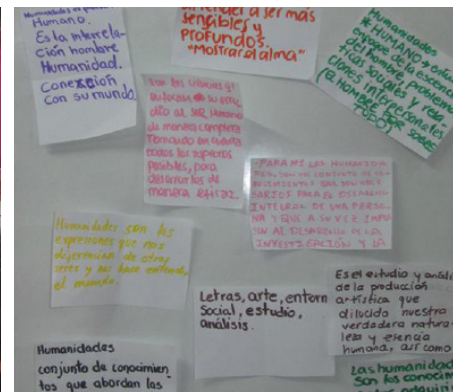 Humano.
Es la interrela-
ción hombre
Humanidad.
Conexión
con su mundo.
a ser más
sensibles y
profundos.
"Mostrar el alma"
Humanidades
* HUMANO →
de la esencia
del hombre, problemá-
ticas sociales y rela-
ciones interpersonales
(EL HOMBRE POR SOBRE
TODO)
las
enfocan su estu-
dio al SER Humano
de manera completa
Tomando en cuenta
todos los aspectos
posibles, para
desarrollos de
manera eficaz.
- PARA MI LAS HUMANIDA-
DES, SON UN CONJUNTO DE CO-
NOCIMIENTOS QUE SON NECE-
SARIOS PARA EL DESARROLLO
INTEGRAL DE UNA PERSO-
NA Y QUE A SU VEZ IMPUL-
SAN AL DESARROLLO DE LA
INVESTIGACIÓN Y LA
Humanidades son las
expresiones que nos
diferencian de otros
seres y nos hace entender
el mundo.
Letras, arte, entorn
Social, estudio,
análisis.
Es el estudio y análi
de la producción
artística que
dilucida nuestra
verdadera natura-
leza y esencia
humana, así como
Humanidades
conjunto de conocimien
tos que abordan las
Las humanidad
son los conocim